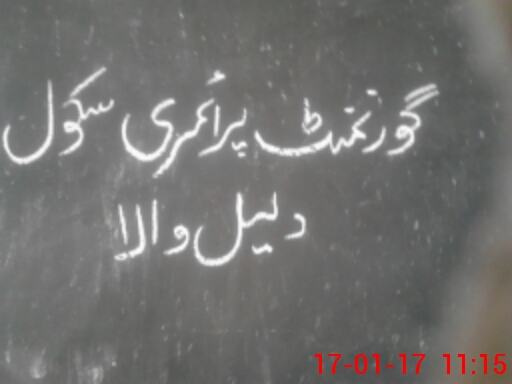 گورنمنٹ پرائمری سکول
دلیل والا
17-01-17 11:15